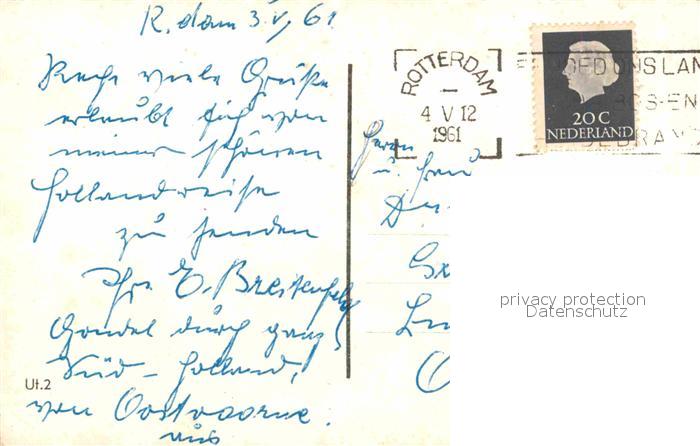 R. dam 3.V. 61
Recht viele Grüße
erlaubt sich von
meiner schönen
Hollandreise
zu senden
Ihr E. Breitenfeld
Gondel durch ganz
Süd-Holland,
von Oostvoorne
aus
Ut.2
ROTTERDAM
4 V 12
1961
20 C
NEDERLAND
Herrn
u. Frau
Dr.
privacy protection
Datenschutz